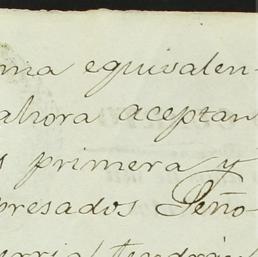 ma equivalen-
ahora aceptan
s primera y
presados Seño-